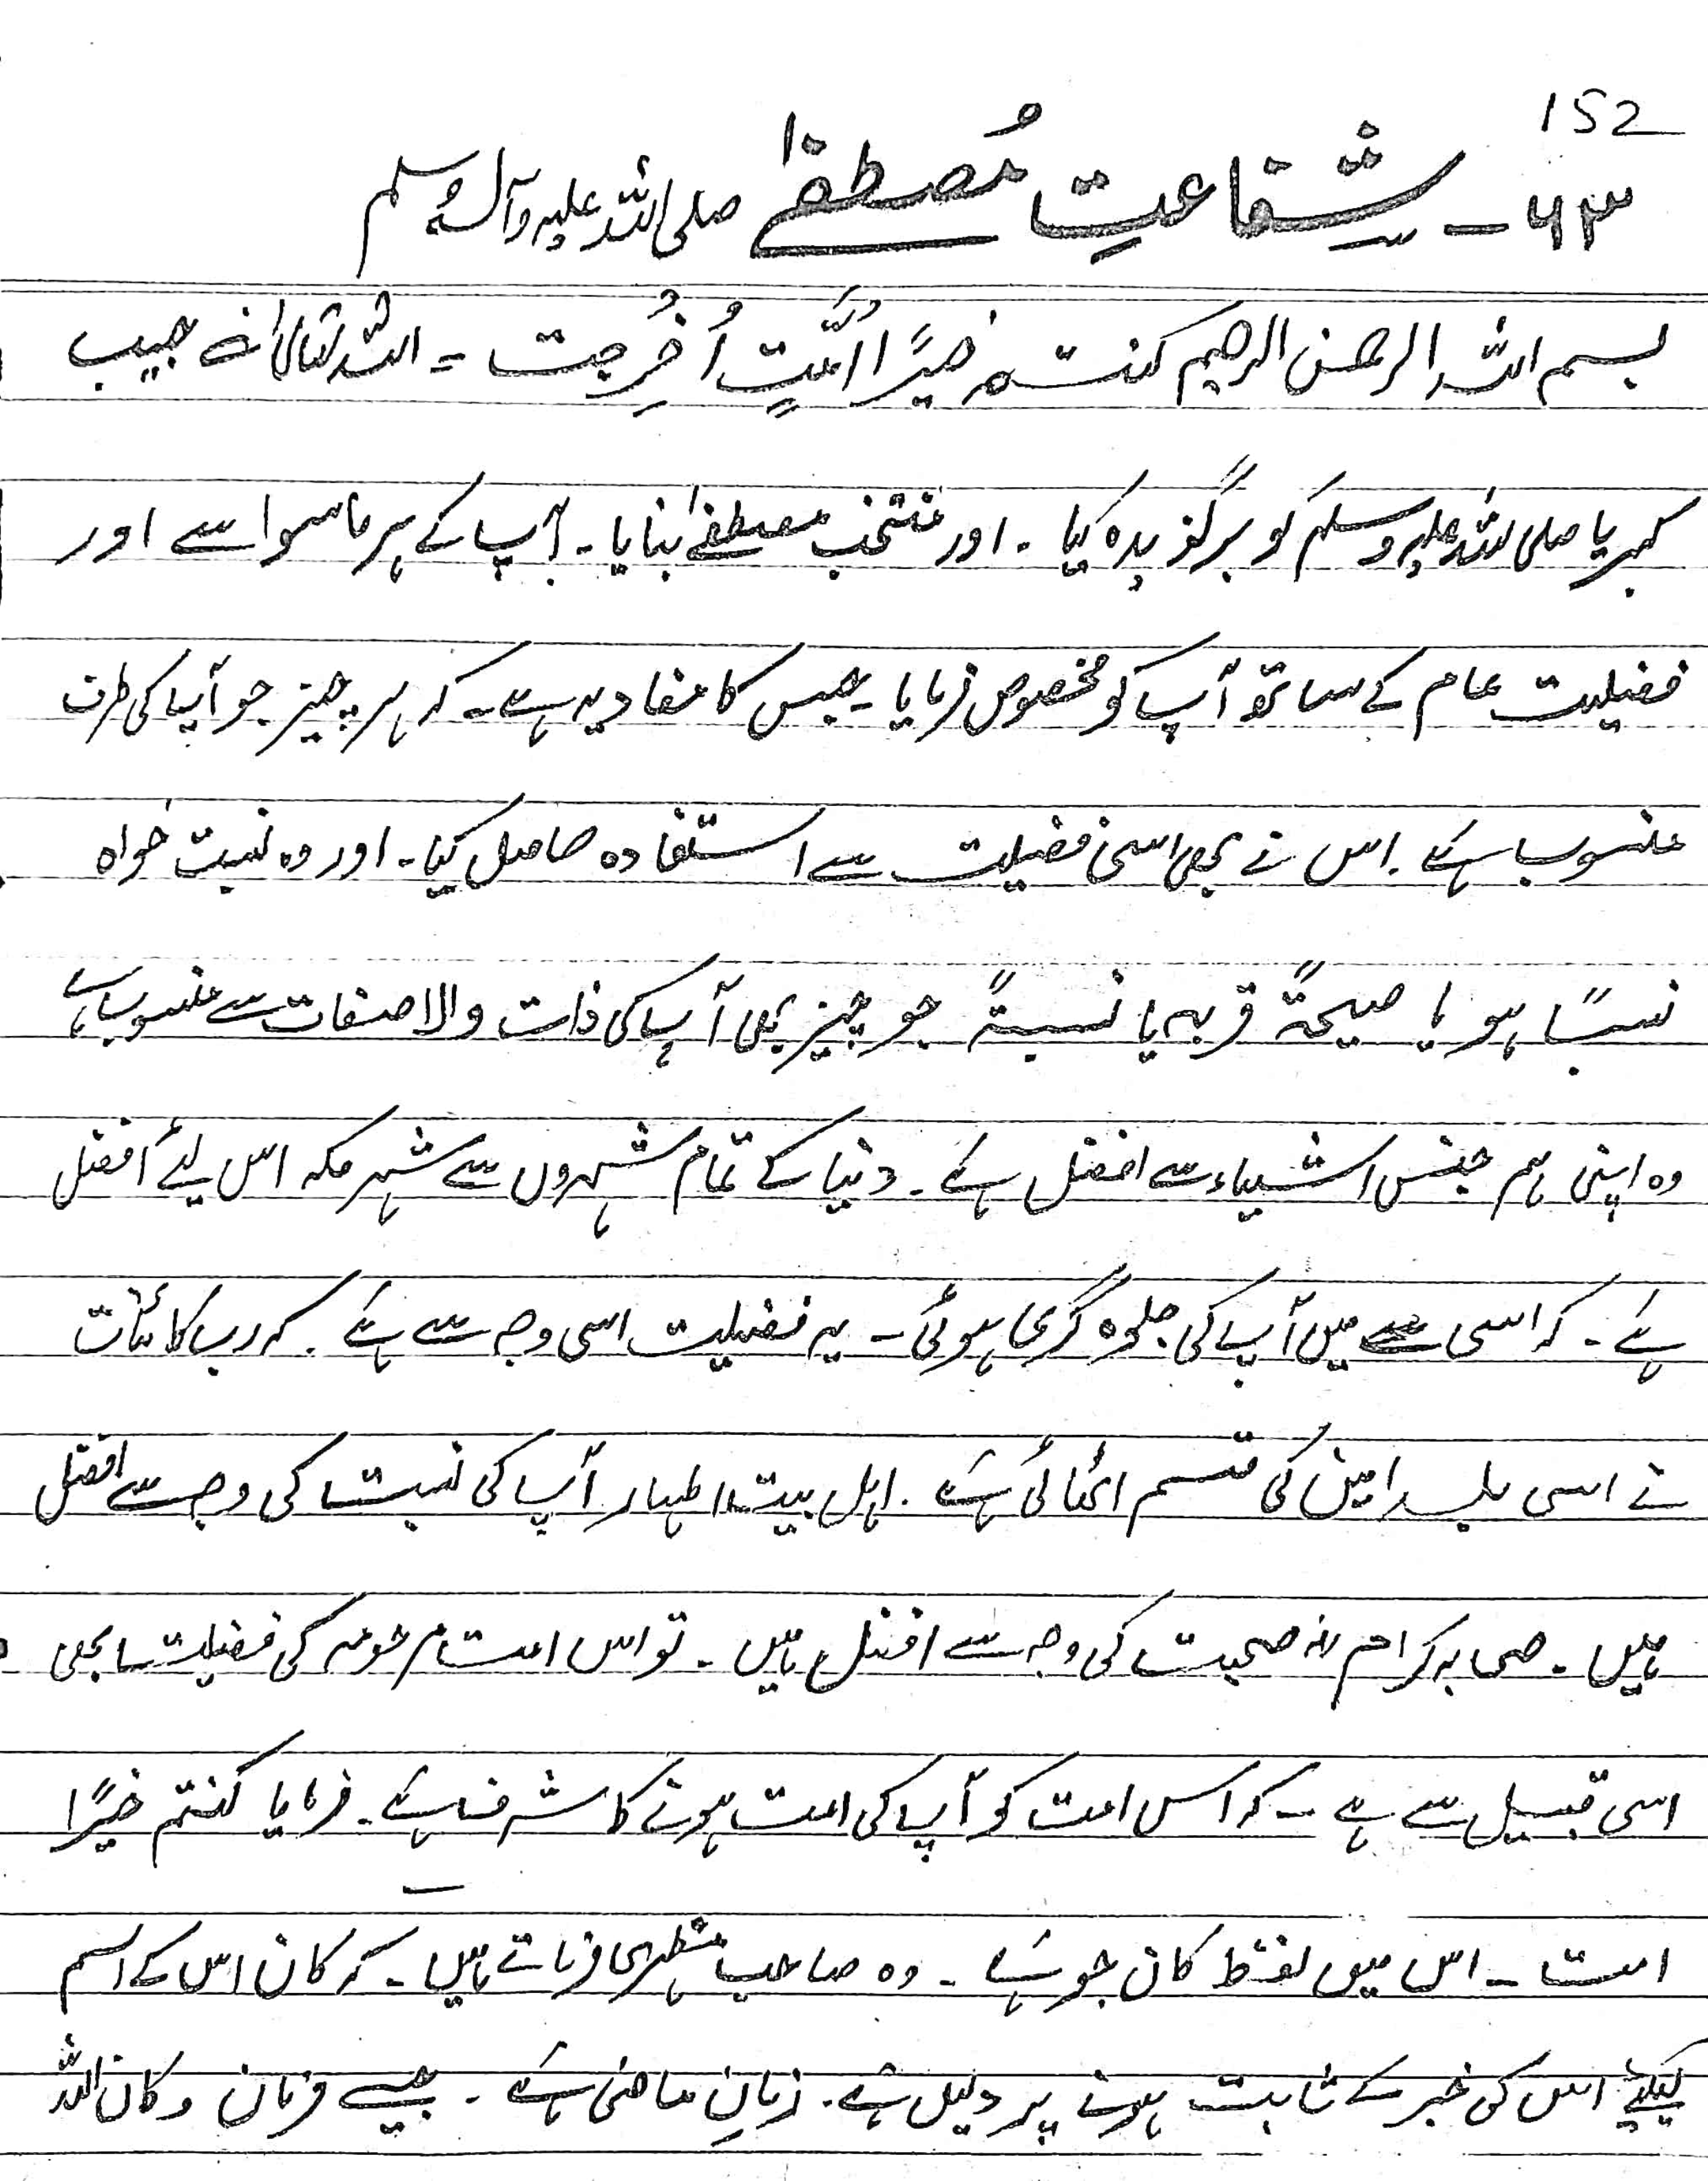 152
۶۳ - شفاعتِ مُصطفےٰ صلی اللہ علیہ وآلہ وسلم
بسم اللہ الرحمٰن الرحیم کنتم خیرًا اُمَّتٍ اُخرِجت - اللہ تعالیٰ نے حبیب
کبریا صلی اللہ علیہ وسلم کو برگزیدہ کیا - اور منتخب مصطفےٰ بنایا - آپ کے ہر ماسوا سے اور
فضیلت عام کے ساتھ آپ کو مخصوص فرمایا - جس کا مفاد یہ ہے - کہ ہر چیز جو آپ کی طرف
منسوب ہے . اس نے بھی اسی فضیلت سے استفادہ حاصل کیا - اور وہ نسبت خواہ
نسبًا ہو یا صیحۃً قربہ یا نسبۃً جو چیز بھی آپ کی ذات والا صفات سے منسوب ہے
وہ اپنی ہم جنس اشیاء سے افضل ہے - دنیا کے تمام شہروں سے شہر مکہ اس لیئے افضل
ہے - کہ اسی میں آپ کی جلوہ گری ہوئی - یہ فضیلت اسی وجہ سے ہے . کہ رب کائنات
نے اسی بلد امین کی قسم اٹھائی ہے . اہل بیت اطہار آپ کی نسبت کی وجہ سے افضل
ہیں - صحابہ کرام رضہ صحبت کی وجہ سے افضل ہیں - تو اس امت مرحومہ کی فضیلت بھی
اسی قبیل سے ہے - کہ اس امت کو آپ کی امت ہونے کا شرف ہے - فرمایا کنتم خیرًا
امت - اس میں لفظ کان جو ہے - وہ صاحب مظہری فرماتے ہیں - کہ کان اس کے اسم
کیلئے اس کی خبر کے ثابت ہونے پر دلیل ہے . زمانِ ماضی ہے - جیسے فرمان وکان اللہ